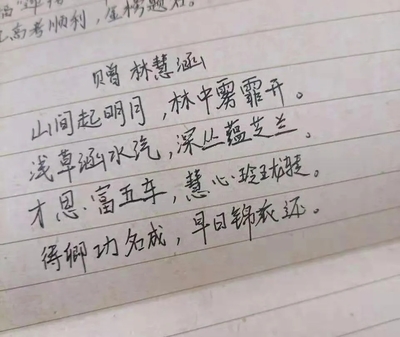 高考顺利,金榜题名。
赠 林慧涵
山间起明月,林中雾霏开。
浅草涵水汽,深丛蕴芝兰。
才思富五车,慧心玲珑。
得卿功名成,早日锦衣还。